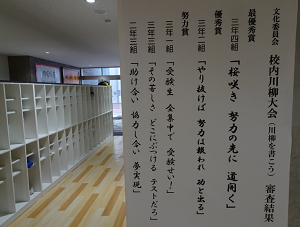 文化委員会
校内川柳大会(川柳を書こう) 審査結果
最優秀賞
三年四組 「桜咲き 努力の先に 道開く」
優秀賞
三年二組 「やり抜けば 努力は報われ 功と出る」
努力賞
三年一組 「受験生 全集中で 受験せい!」
三年三組 「その苦しさ どこにぶつける テストだろ」
二年三組 「助け合い 協力し合い 夢実現」